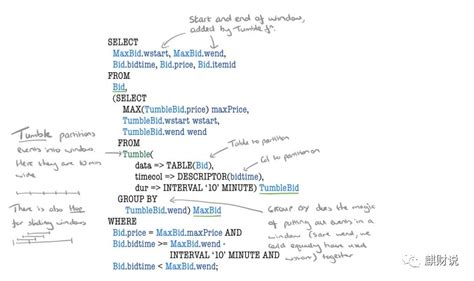 Start and end of window,
added by Tumble fn.
SELECT
MaxBid.wstart, MaxBid.wend,
Bid.bidtime, Bid.price, Bid.itemid
FROM
Bid,
(SELECT
MAX(TumbleBid.price) maxPrice,
TumbleBid.wstart wstart,
TumbleBid.wend wend
FROM
Tumble(
data => TABLE(Bid),
timecol => DESCRIPTOR(bidtime),
dur => INTERVAL '10' MINUTE) TumbleBid
GROUP BY
TumbleBid.wend) MaxBid
WHERE
Bid.price = MaxBid.maxPrice AND
Bid.bidtime >= MaxBid.wend -
INTERVAL '10' MINUTE AND
Bid.bidtime < MaxBid.wend;
Tumble partitions
events into windows
Here they are 10 min
wide
There is also Hop
for sliding windows
Table to partition
Col to partition on
GROUP BY does the magic
of putting all events in a
window (same wend, we
could equally have used
wstart) together
麒财说